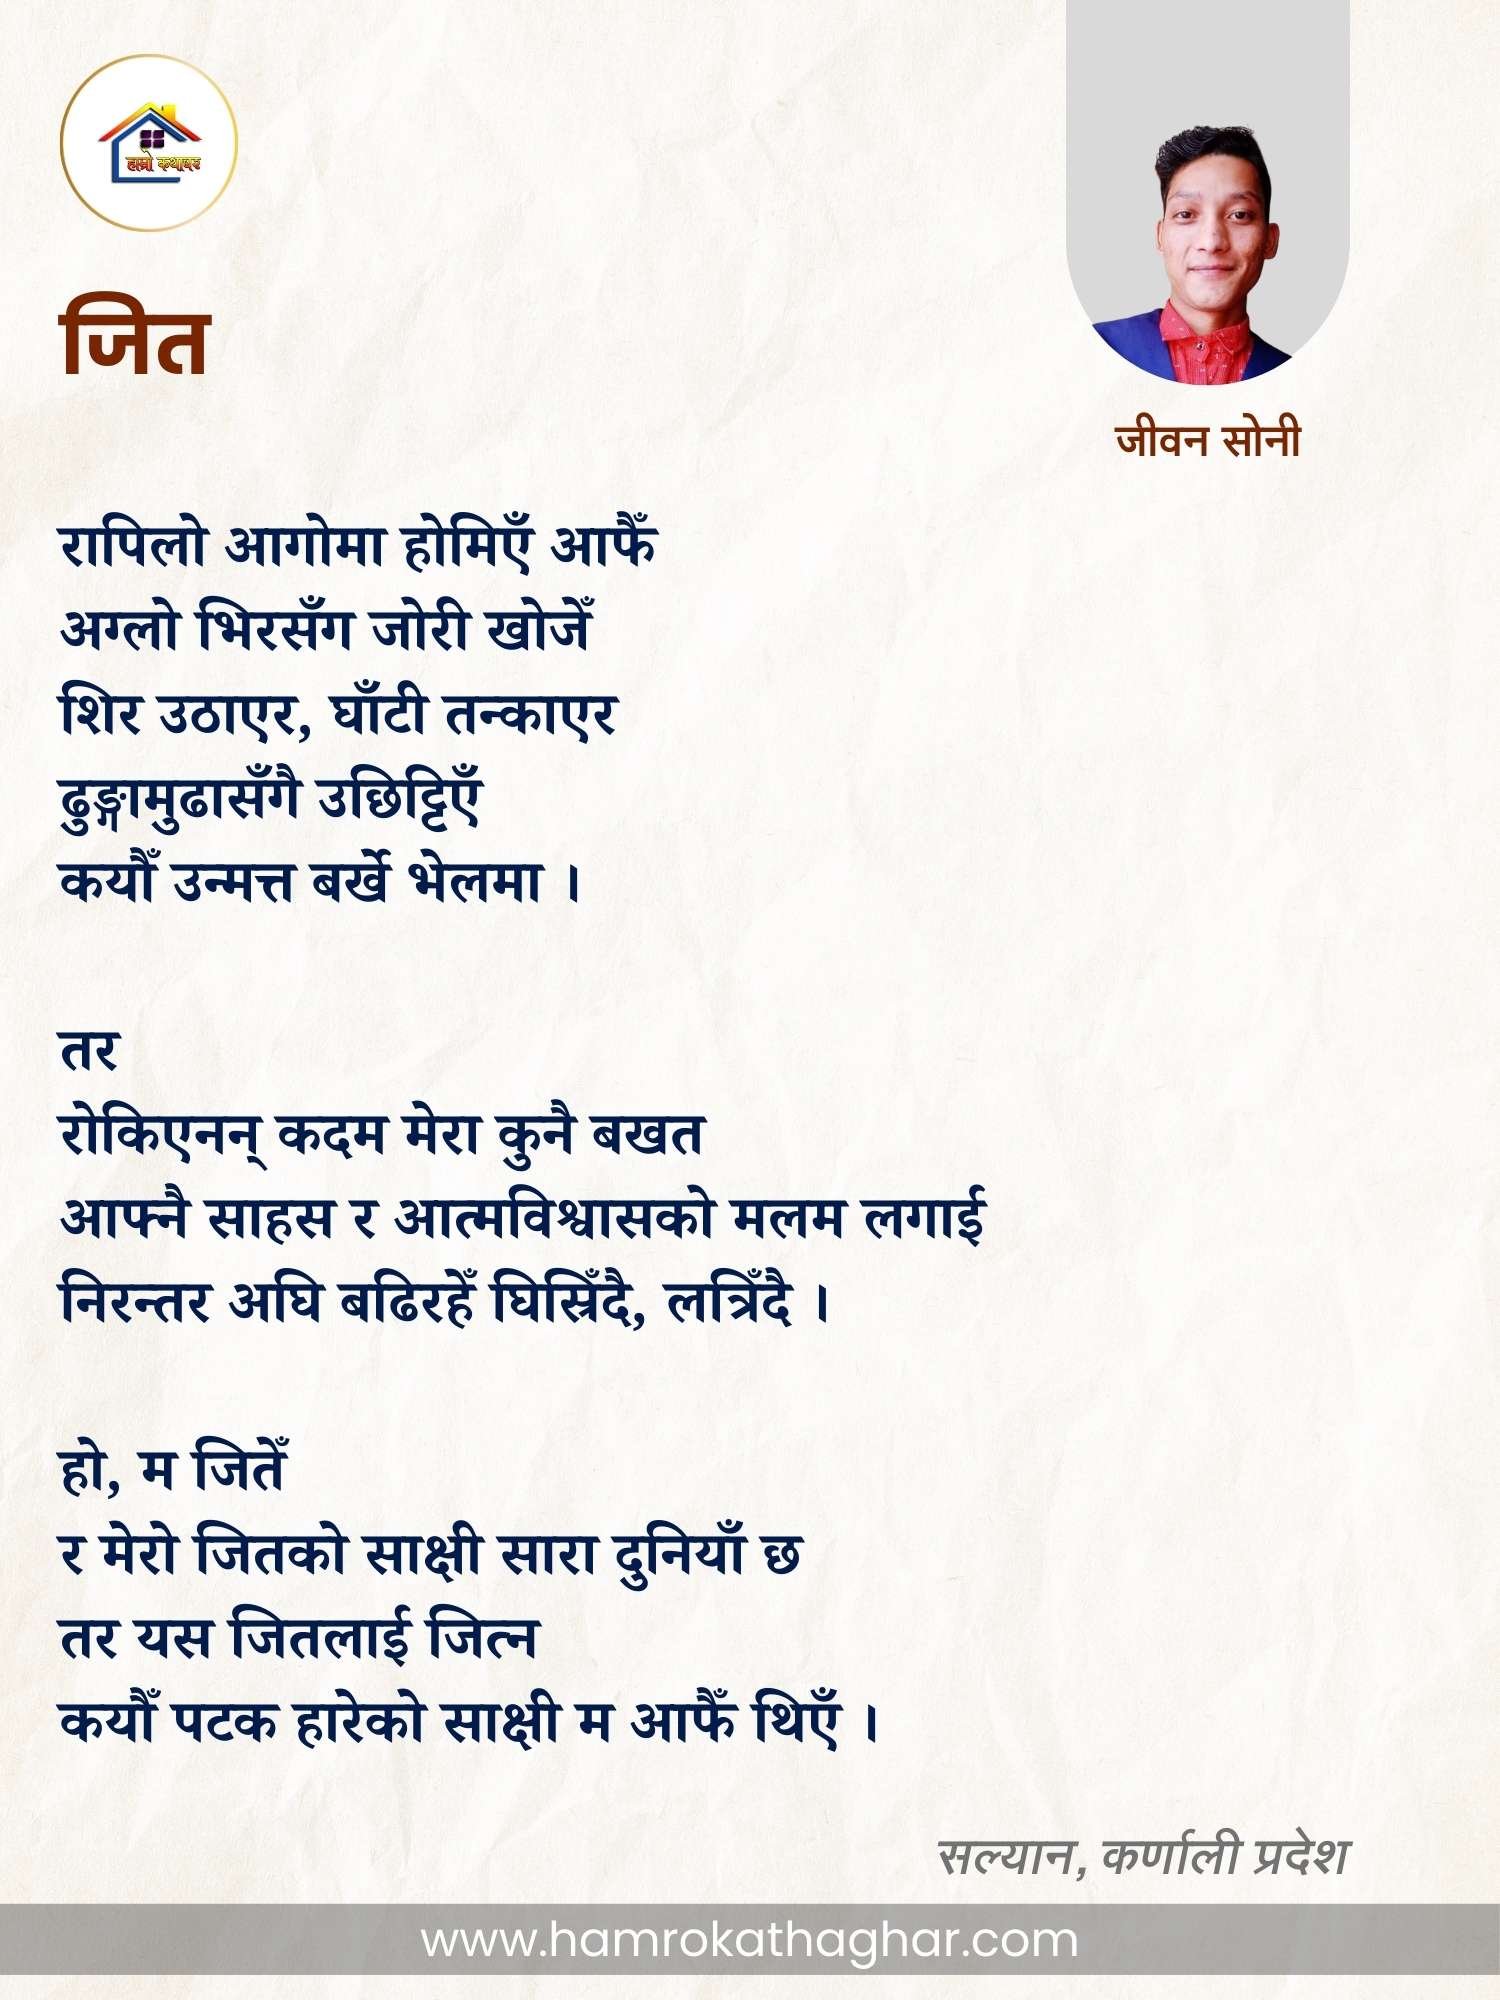 हाम्रो कथाघर
जित
जीवन सोनी
रापिलो आगोमा होमिएँ आफैँ
अग्लो भिरसँग जोरी खोजेँ
शिर उठाएर, घाँटी तन्काएर
ढुङ्गामुढासँगै उछिट्टिएँ
कयौँ उन्मत्त बर्खे भेलमा ।
तर
रोकिएनन् कदम मेरा कुनै बखत
आफ्नै साहस र आत्मविश्वासको मलम लगाई
निरन्तर अघि बढिरहेँ घिस्रिँदै, लत्रिँदै ।
हो, म जितेँ
र मेरो जितको साक्षी सारा दुनियाँ छ
तर यस जितलाई जित्न
कयौँ पटक हारेको साक्षी म आफैँ थिएँ ।
सल्यान, कर्णाली प्रदेश
www.hamrokathaghar.com